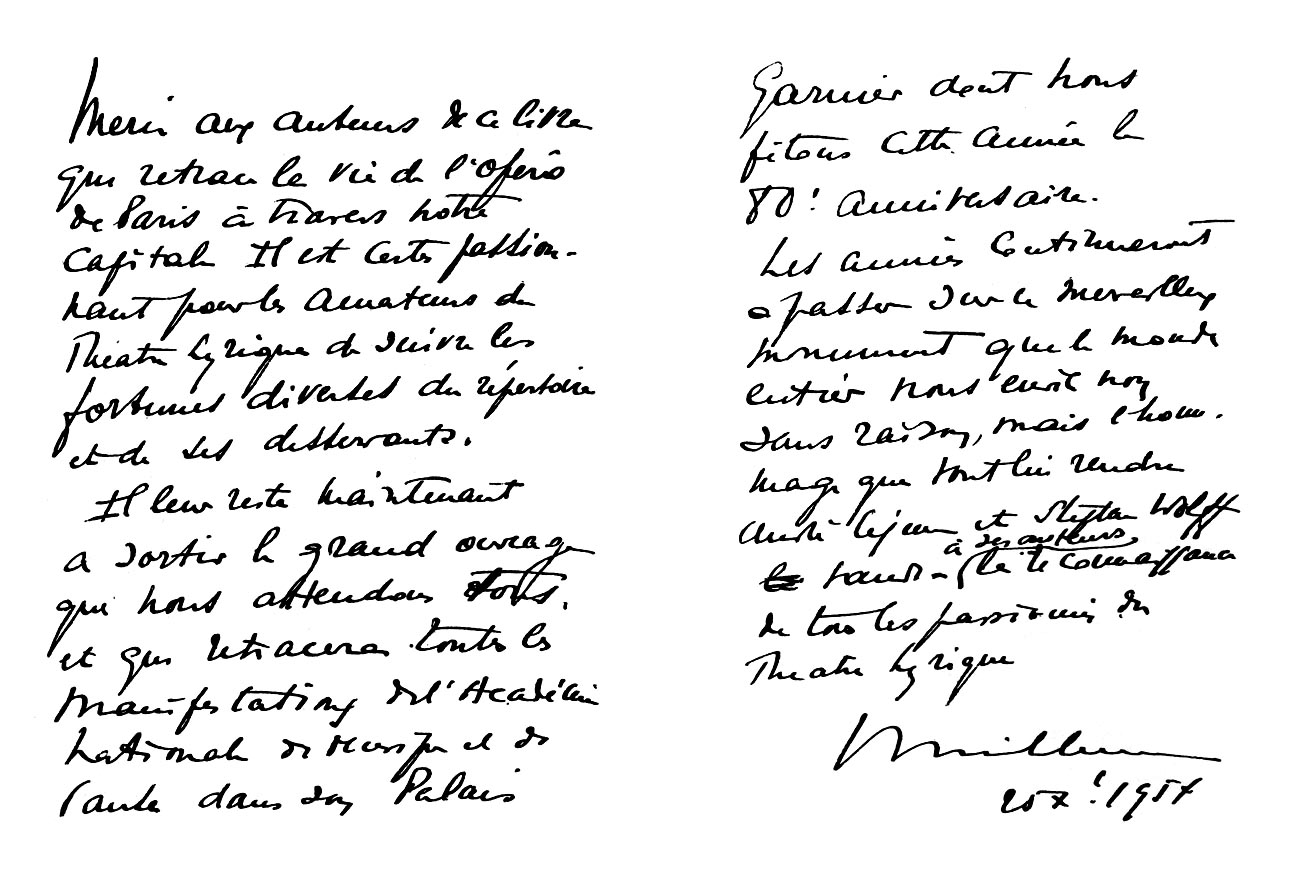 Merci aux auteurs de ce livre
qui retrace la vie de l'Opéra
de Paris à travers notre
Capitale Il est certes passion-
nant pour les Amateurs du
Théatre Lyrique de suivre les
fortunes diverses du répertoire
et de ses desservants.
Il leur reste maintenant
a sortir le grand ouvrage
que nous attendons tous,
et qui retracera toutes les
manifestations de l'Académie
Nationale de Musique et de
Danse dans son Palais
Garnier dont nous
fêtons cette année le
80e Anniversaire.
Les années continueront
a passer sur ce merveilleux
monument que le monde
entier nous envie non
sans raison, mais l'hom-
mage que vont lui rendre
André Lejeune et Stéphan Wolff
à ses auteurs,
la reconnaissance
de tous les passionnés du
Theatre Lyrique
25 Xe 1954